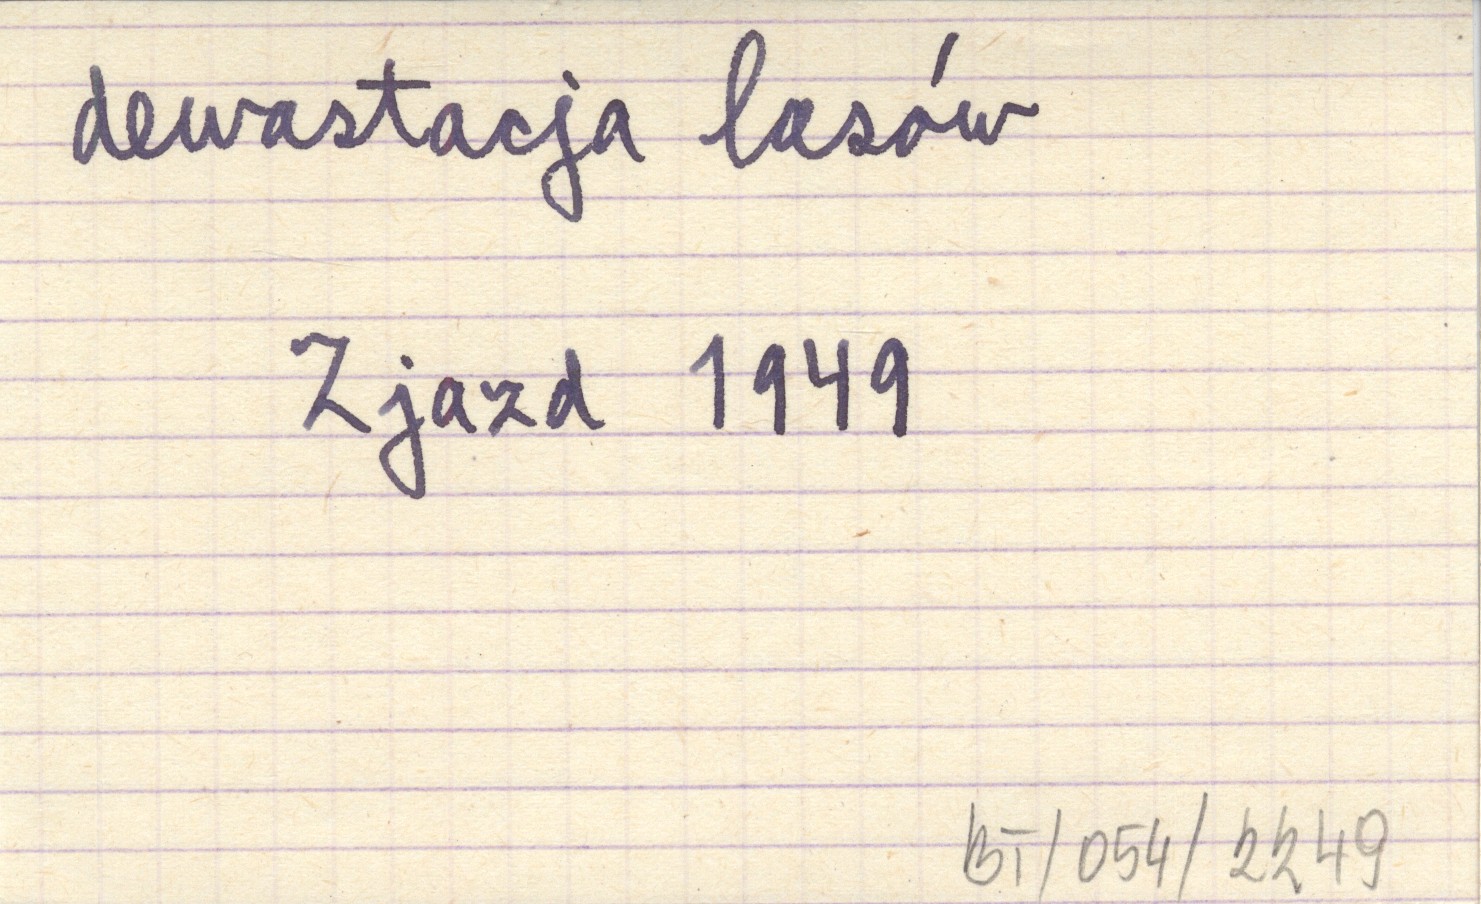 dewastacja lasów
Zjazd 1949
BT/054/2249